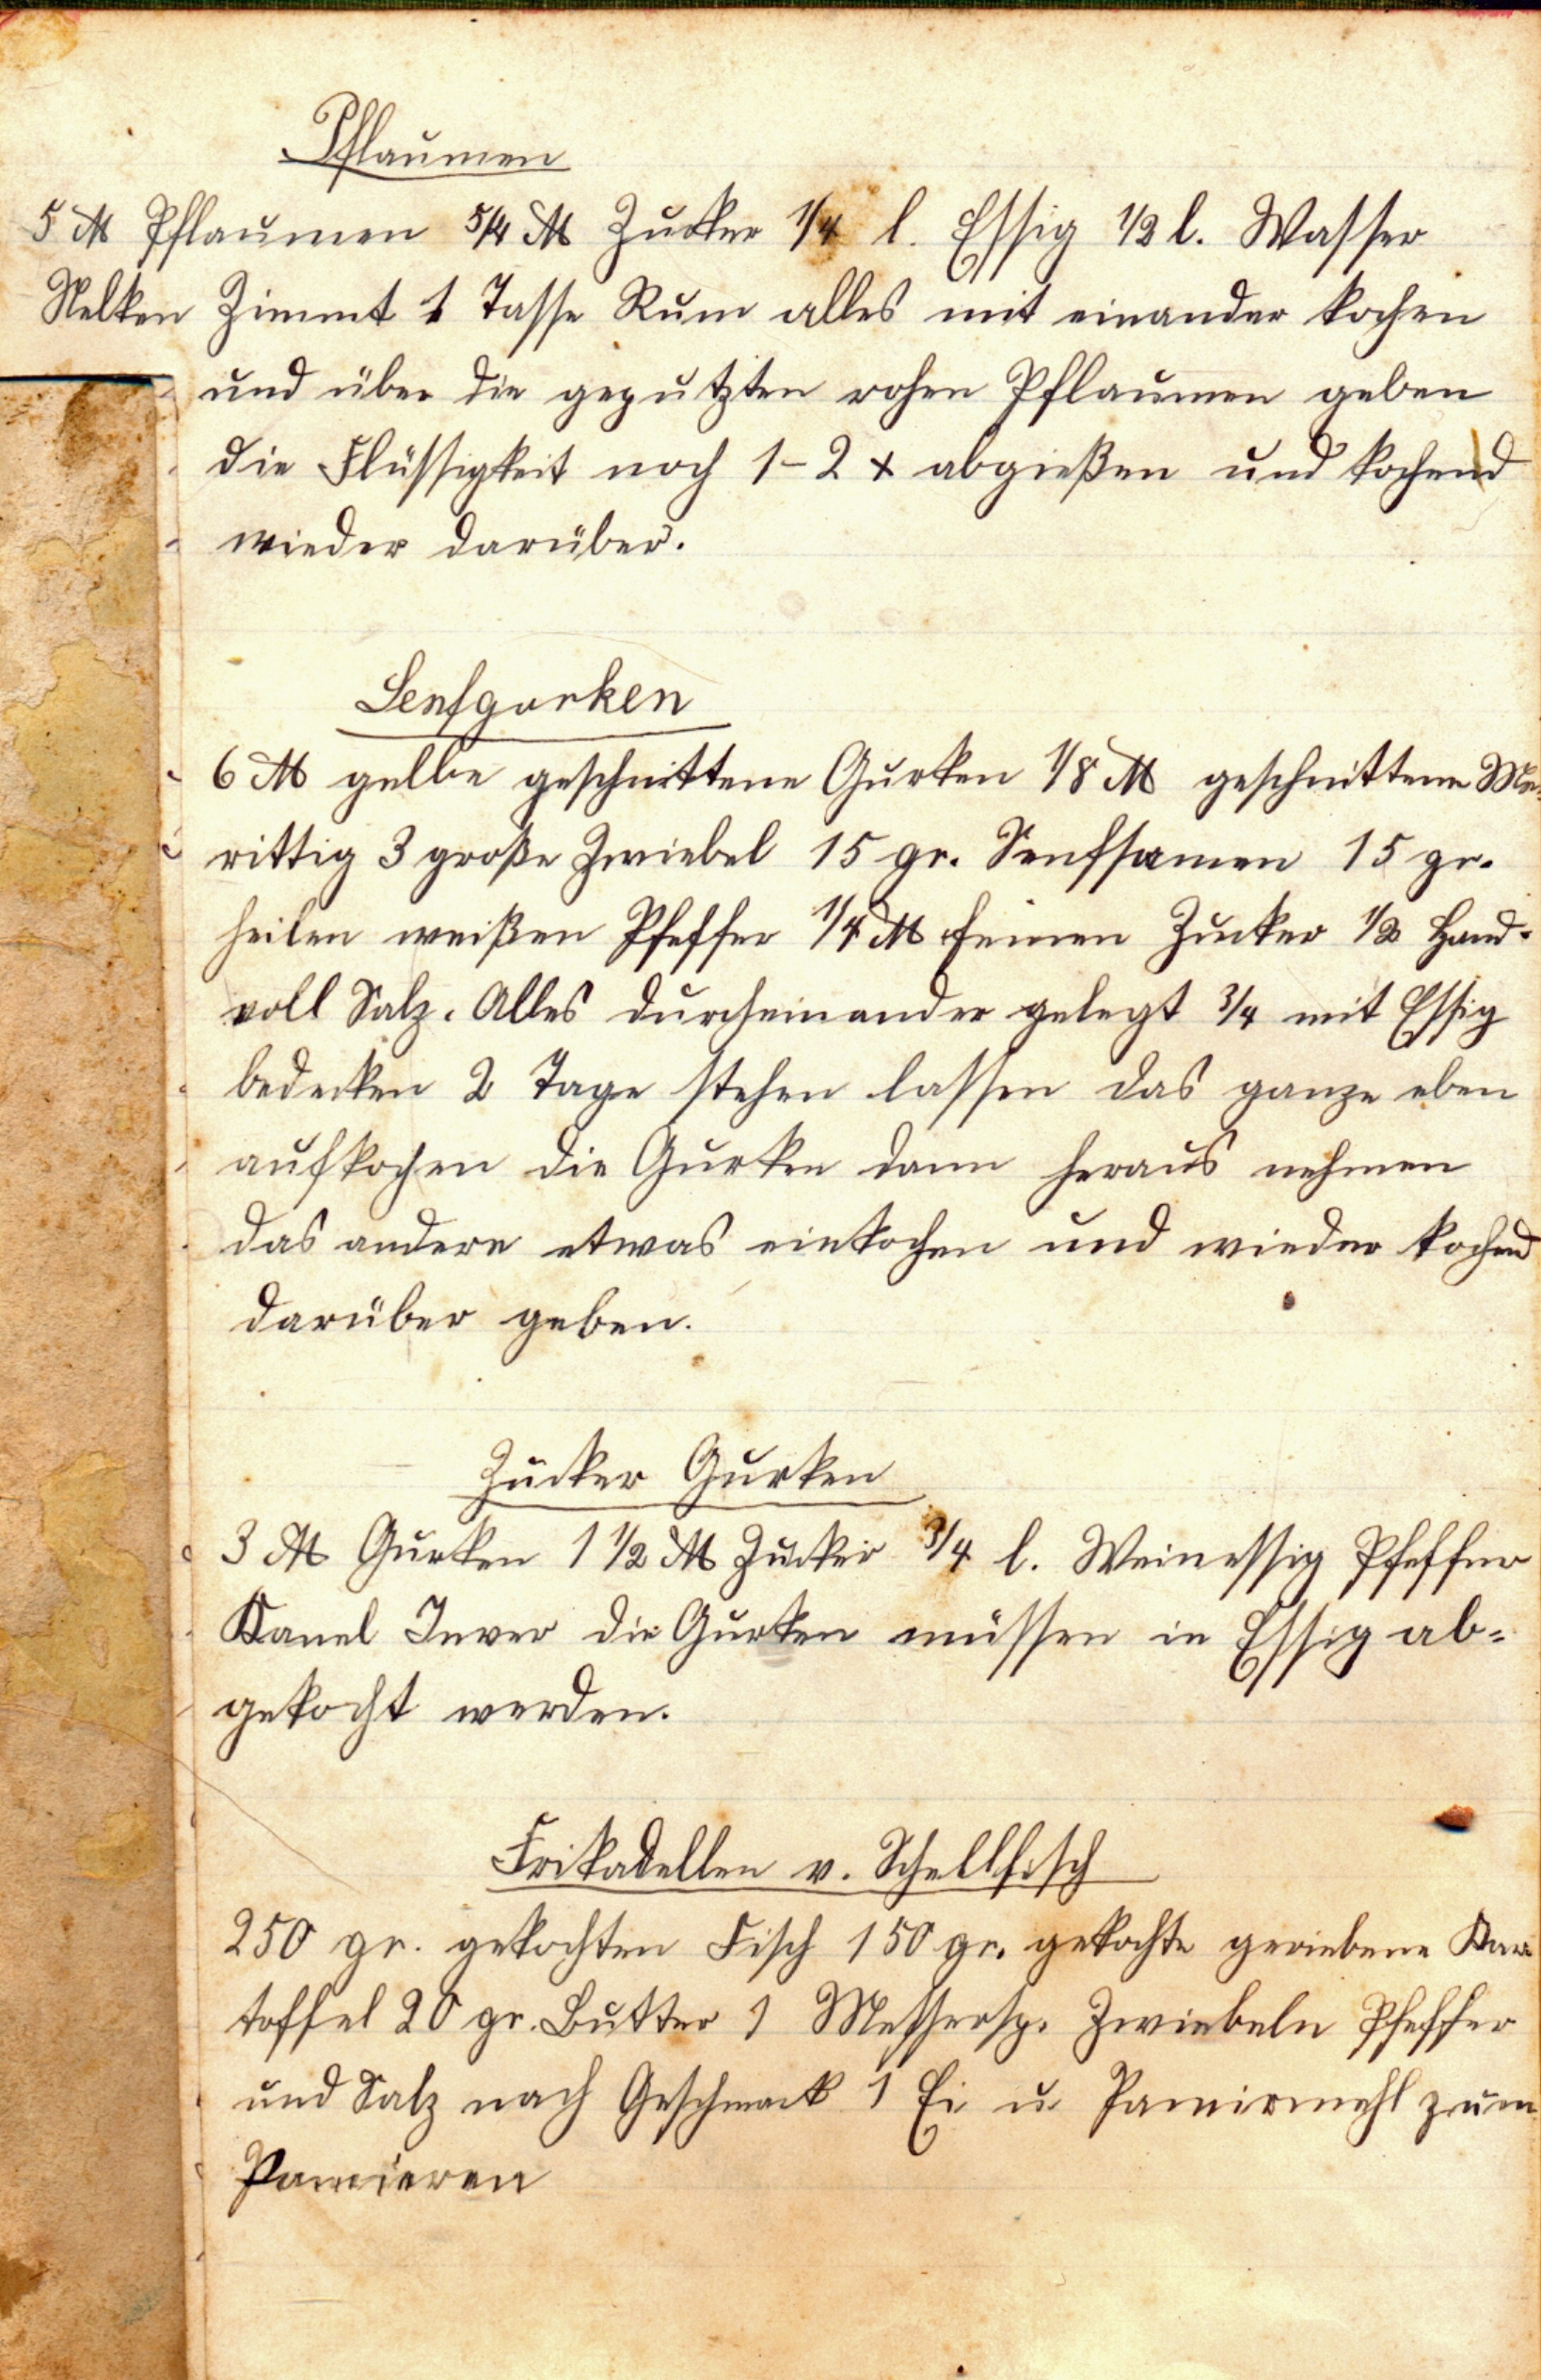 Pflaumen
5 ℔ Pflaumen 5/4 ℔ Zucker 1/4 l. Essig 1/2 l. Wasser
Nelken Zimmt 1 Tasse Rum alles mit einander kochen
und über die geputzten rohen Pflaumen geben
die Flüssigkeit noch 1-2 x abgießen und kochend
wieder darüber.
Senfgurken
6 ℔ gelbe geschnittene Gurken 1/8 ℔ geschnittene Me-
rittig 3 große Zwiebel 15 gr. Senfsamen 15 gr.
heilen weißen Pfeffer 1/4 ℔ feinen Zucker 1/2 Hand-
voll Salz. Alles durcheinander gelegt 3/4 mit Essig
bedecken 2 Tage stehen lassen das ganze eben
aufkochen die Gurken dann heraus nehmen
das andere etwas einkochen und wieder kochend
darüber geben.
Zucker Gurken
3 ℔ Gurken 1 1/2 ℔ Zucker 3/4 l. Weinessig Pfeffer
Kanel Inver die Gurken müssen in Essig ab-
gekocht werden.
Frikadellen v. Schellfisch
250 gr. gekochten Fisch 150 gr. gekochte geriebene Kar
toffel 20 gr. Butter 1 Messersp. Zwiebeln Pfeffer
und Salz nach Geschmack 1 Ei u. Panirmehl zum
Panieren